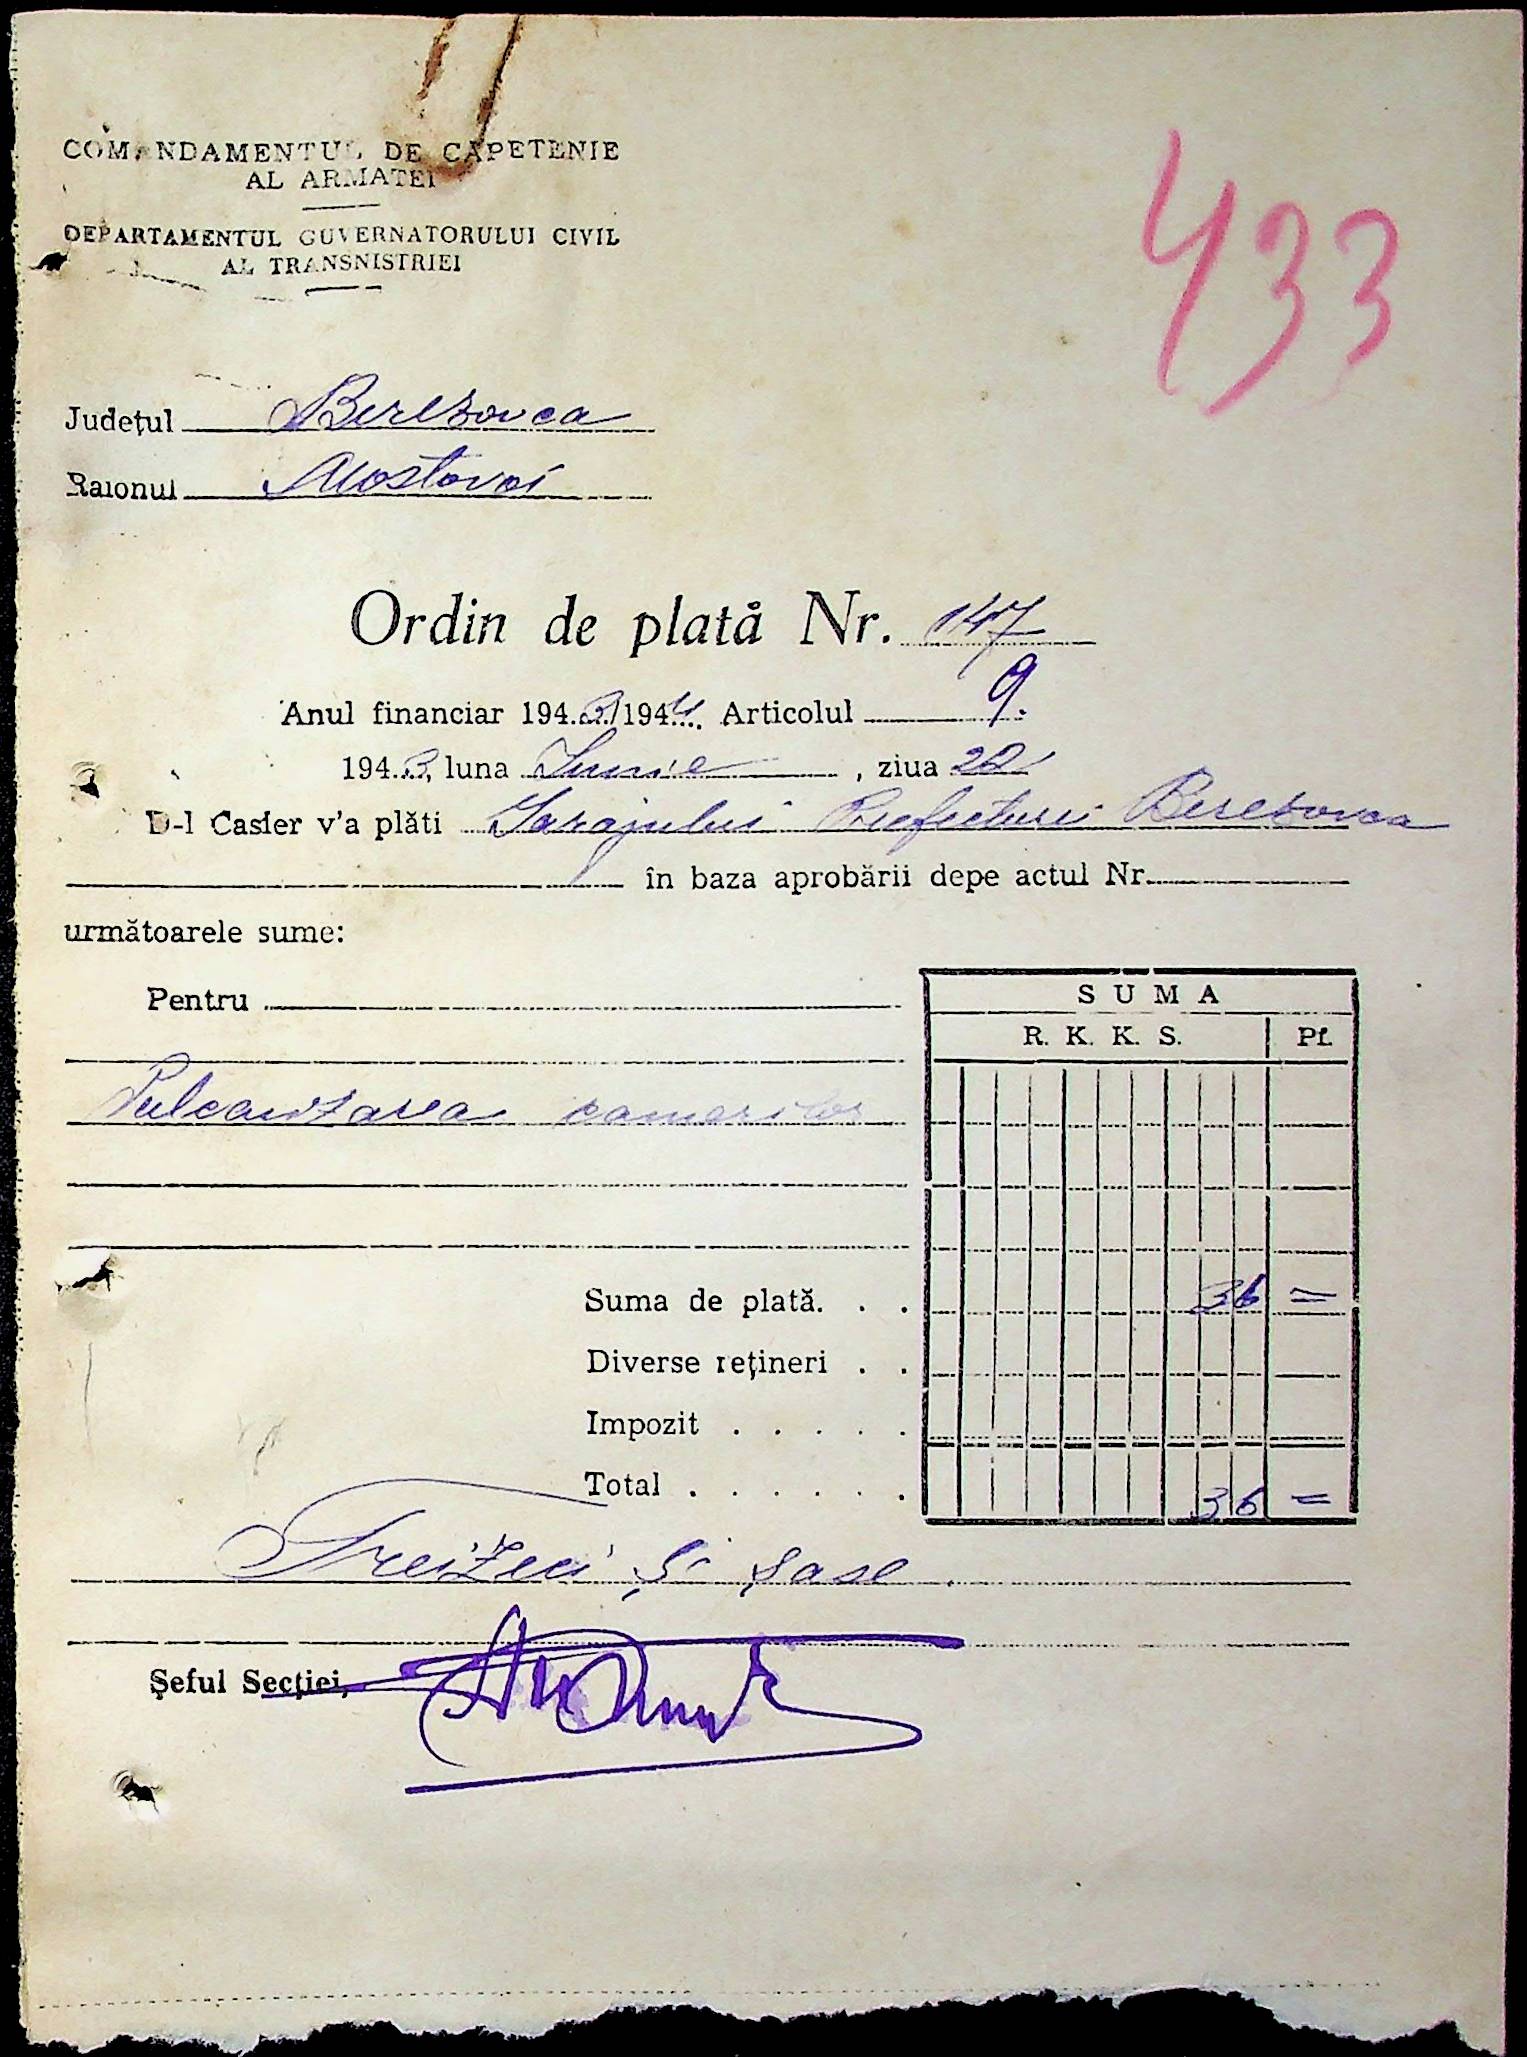 COMANDAMENTUL DE CAPETENIE
AL ARMATEI
DEPARTAMENTUL GUVERNATORULUI CIVIL
AL TRANSNISTRIEI
433
Județul Berezovca
Raionul Mostovoi
Ordin de plată Nr. 147
Anul financiar 1943/1944 Articolul 9.
1943, luna Iunie, ziua 22
D-l Casier v'a plăti Garajului Prefecturii Berezovca
în baza aprobării depe actul Nr.
următoarele sume:
Pentru
SUMA
R. K. K. S. Pf.
Vulcanizarea camerilor
Suma de plată. . . 36 =
Diverse rețineri . .
Impozit . . . . .
Total . . . . . . 36 =
Treizeci și șase
Șeful Secției,